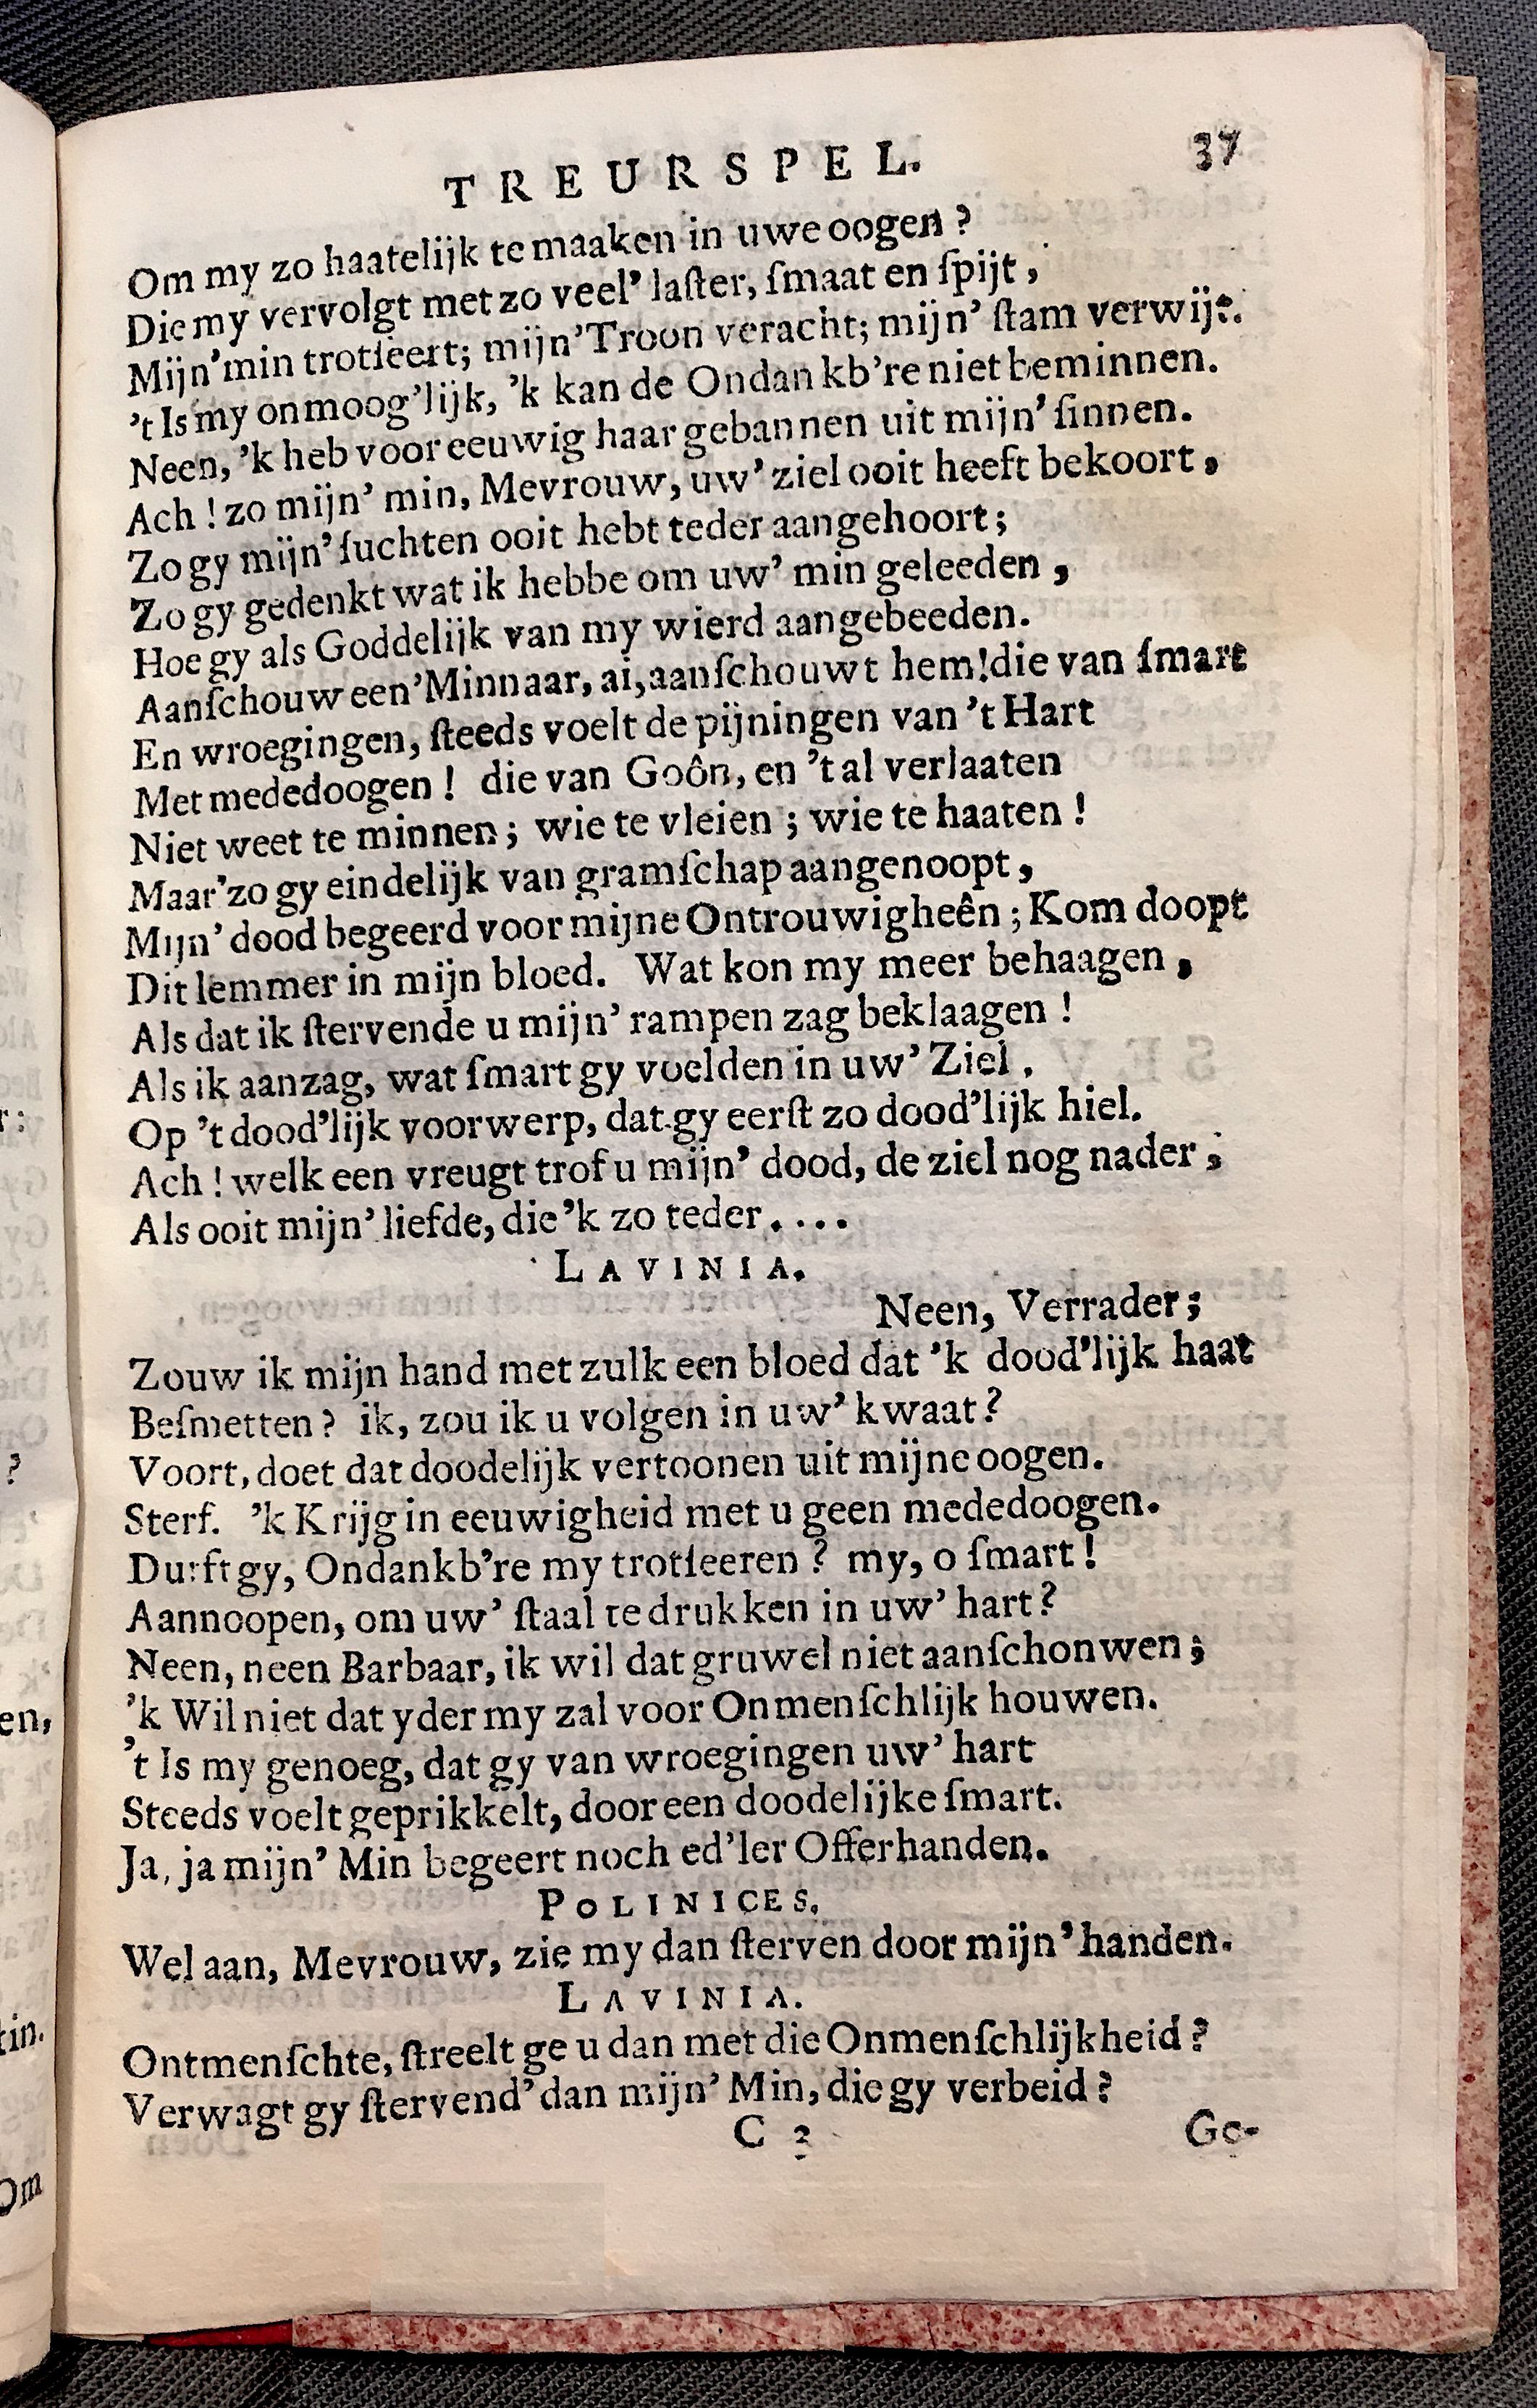 TREURSPEL. 37
Om my zo haatelijk te maaken in uwe oogen?
Die my vervolgt met zo veel’ laſter, ſmaat en ſpijt,
Mijn’ min trotſeert; mijn’ Troon veracht; mijn’ ſtam verwijt.
’t Is my onmoog’lijk, ’k kan de Ondankb’re niet beminnen.
Neen, ’k heb voor eeuwig haar gebannen uit mijn’ ſinnen.
Ach! zo mijn’ min, Mevrouw, uw’ ziel ooit heeft bekoort,
Zo gy mijn’ ſuchten ooit hebt teder aangehoort;
Zo gy gedenkt wat ik hebbe om uw’ min geleeden,
Hoe gy als Goddelijk van my wierd aangebeeden.
Aanſchouw een’ Minnaar, ai, aanſchouwt hem! die van ſmart
En wroegingen, ſteeds voelt de pijningen van ’t Hart
Met mededoogen! die van Goôn, en ’t al verlaaten
Niet weet te minnen; wie te vleien; wie te haaten!
Maar’ zo gy eindelijk van gramſchap aangenoopt,
Mijn’ dood begeerd voor mijne Ontrouwigheên; Kom doopt
Dit lemmer in mijn bloed. Wat kon my meer behaagen,
Als dat ik ſtervende u mijn’ rampen zag beklaagen!
Als ik aanzag, wat ſmart gy voelden in uw’ Ziel.
Op ’t dood’lijk voorwerp, dat gy eerſt zo dood’lijk hiel.
Ach! welk een vreugt trof u mijn’ dood, de ziel nog nader;
Als ooit mijn’ liefde, die ’k zo teder....
LAVINIA.
Neen, Verrader;
Zouw ik mijn hand met zulk een bloed dat ’k dood’lijk haat
Beſmetten? ik, zou ik u volgen in uw’ kwaat?
Voort, doet dat doodelijk vertoonen uit mijne oogen.
Sterf. ’k Krijg in eeuwigheid met u geen mededoogen.
Durft gy, Ondankb’re my trotſeeren? my, o ſmart!
Aannoopen, om uw’ ſtaal te drukken in uw’ hart?
Neen, neen Barbaar, ik wil dat gruwel niet aanſchonwen;
’k Wil niet dat yder my zal voor Onmenſchlijk houwen.
’t Is my genoeg, dat gy van wroegingen uw’ hart
Steeds voelt geprikkelt, door een doodelijke ſmart.
Ja, ja mijn’ Min begeert noch ed’ler Offerhanden.
POLINICES.
Wel aan, Mevrouw, zie my dan ſterven door mijn’ handen.
LAVINIA.
Ontmenſchte, ſtreelt ge u dan met die Onmenſchlijkheid?
Verwagt gy ſtervend’ dan mijn’ Min, die gy verbeid?
C 2 Ge-